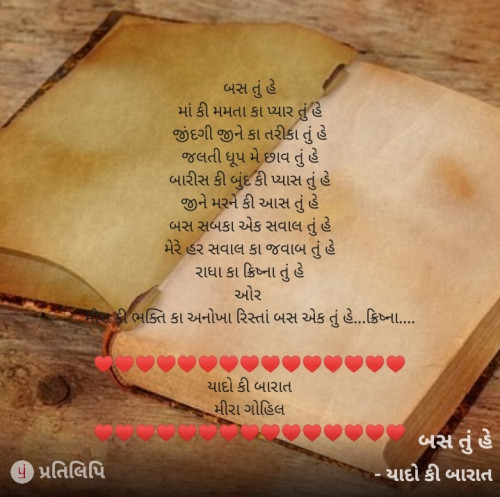 બસ તું હે
માં કી મમતા કા પ્યાર તું હે
જીંદગી જીને કા તરીકા તું હે
જલતી ધૂપ મે છાવ તું હે
બારીસ કી બુંદ કી પ્યાસ તું હે
જીને મરને કી આસ તું હે
બસ સબકા એક સવાલ તું હે
મેરે હર સવાલ કા જવાબ તું હે
રાધા કા ક્રિષ્ના તું હે
ઓર
કી ભક્તિ કા અનોખા રિસ્તાં બસ એક તું હે...ક્રિષ્ના....
♥♥♥♥♥♥♥♥♥♥♥♥♥♥♥
યાદો કી બારાત
મીરા ગોહિલ
♥♥♥♥♥♥♥♥♥♥♥♥♥♥♥
બસ તું હે
- યાદો કી બારાત
પ્રતિલિપિ